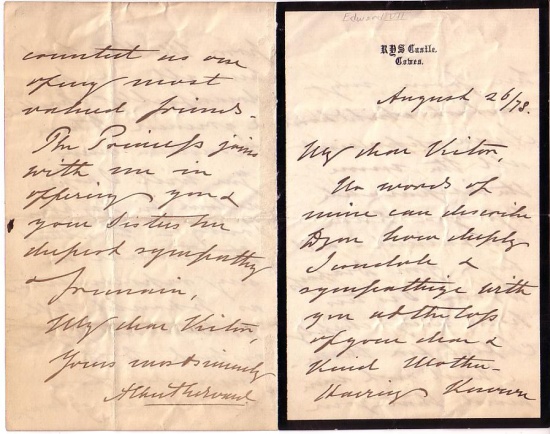 Edward VII
RYS Castle.
Cowes.
August 26/78.
My dear Victor,
No words of
mine can describe
to you how deeply
I condole &
sympathize with
you at the loss
of your dear &
kind Mother.
Having known
counted as one
of my most
valued friends.
The Princess joins
with me in
offering you &
your Sisters her
deepest sympathy
& I remain,
My dear Victor,
Yours most sincerely
Albert Edward